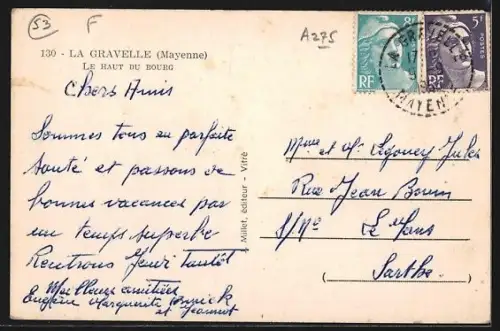 53
F
A275
130 - LA GRAVELLE (Mayenne)
LE HAUT DU BOURG
Chers Amis
Sommes tous en parfaite
santé et passons de
bonnes vacances par
un temps superbe
Rentrons Jeudi tantôt
Meilleures amitiés
Eugène Marguerite Annick
et Jeannot
Millet, éditeur - Vitré
8F
RF
5F
POSTES
RF
LA GRAVELLE
17
MAYENNE
Mme et Mr Legouey Jules
Rue Jean Bouin
S/Ne Le Mans
(Sarthe)